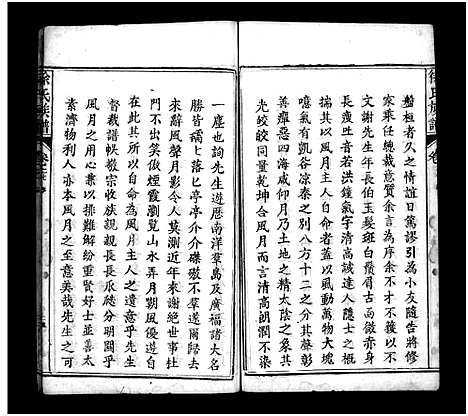 徐氏族譜 卷
盤桓者久之情誼日篤謬引為小友隨告將修
家乘任總裁意欲責余為序余不才不獲以不
文謝先生年長伯玉鬚斑白鬢眉古面微赤身
長瘦立音若洪鐘氣宇清高誠達人君子也詢
其何以風月主人自命者蓋以風動萬物大塊
噫氣有凱谷凉泰之別八方十二之分其聲彰
善癉惡四海咸仰月乃土地之精太陰之象清
光皎皎同量乾坤合風月而言清高朗潤不染
一塵也詢先生遊歷南洋羣島及廣福諸大名
勝皆稱七落匕亭亭介介磔礉不羣遂爾歸去
來辭風聲月影令人莫測近年來謝絕世事杜
門不出笑傲煙霞瀏覽山水弄月嘲風優遊自
在此其所以自命為風月主人之遺意乎先生
督裁譜帙敬宗收族親親長長派徒分明關乎
風月之用心兼以排難解紛重世好士並善太
素濟物利人亦本風月之至意美哉先生之可
徐氏族譜 卷